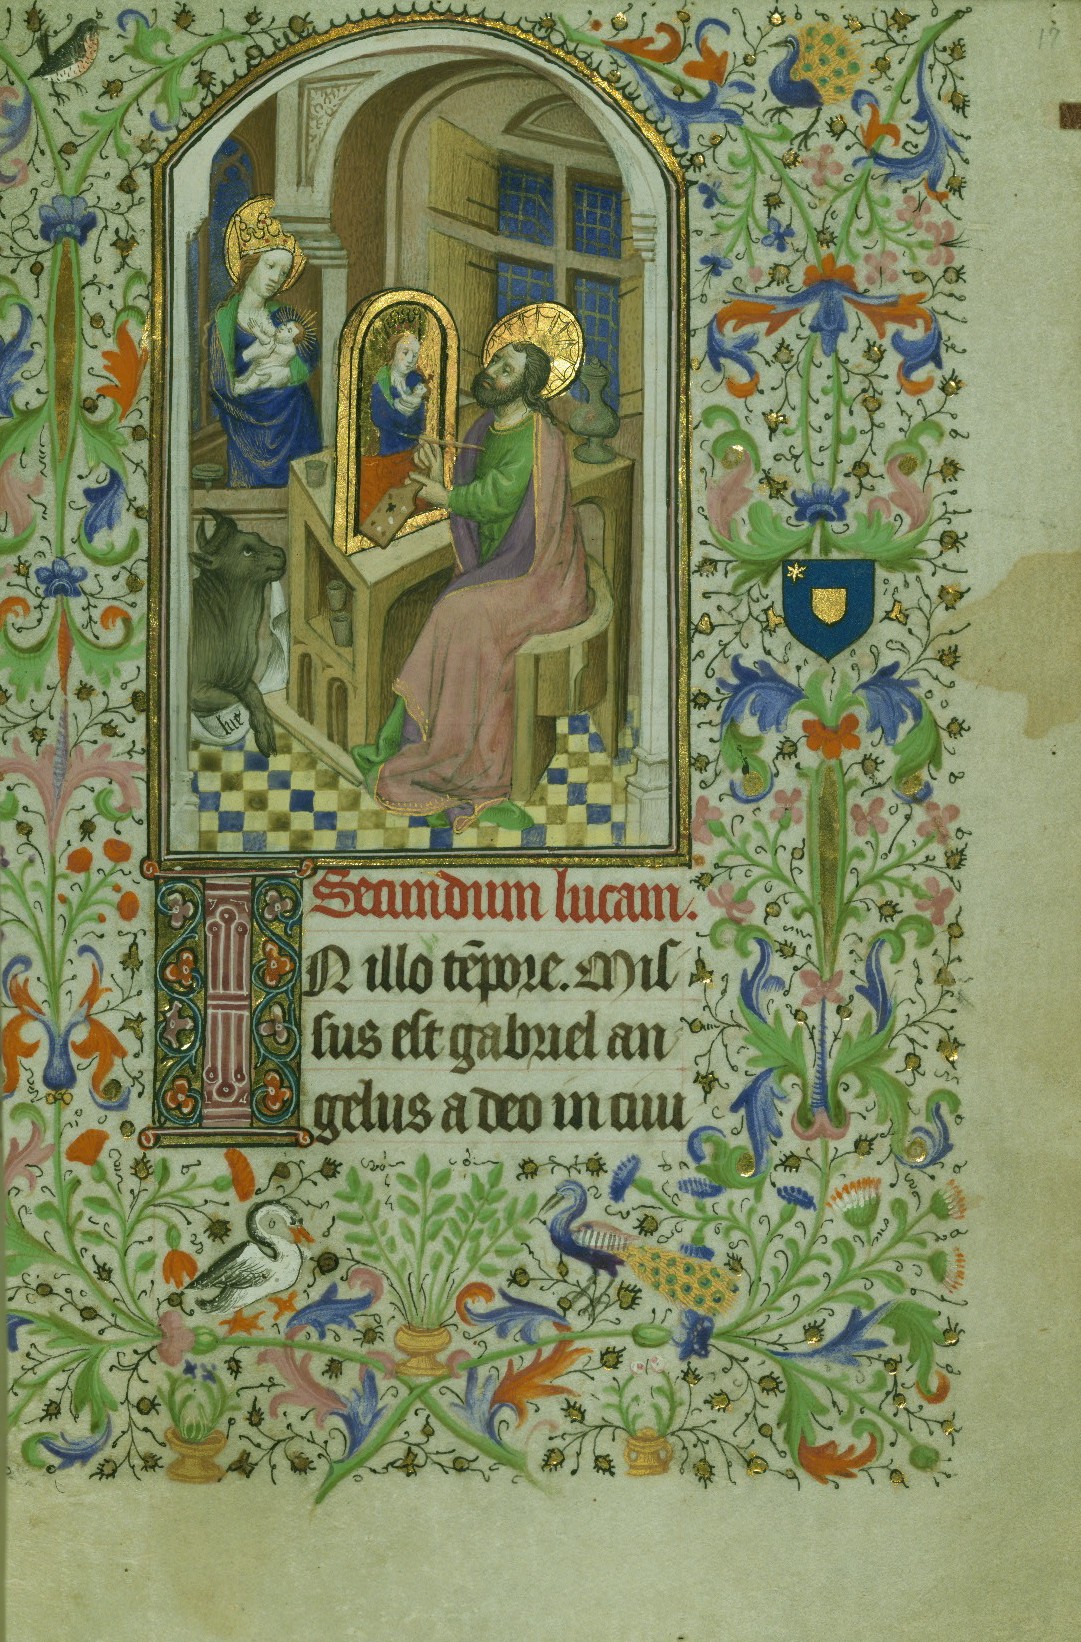 17
luc
Secundum lucam.
IN illo tēpore. Mis
sus est gabriel an
gelus a deo in ciui